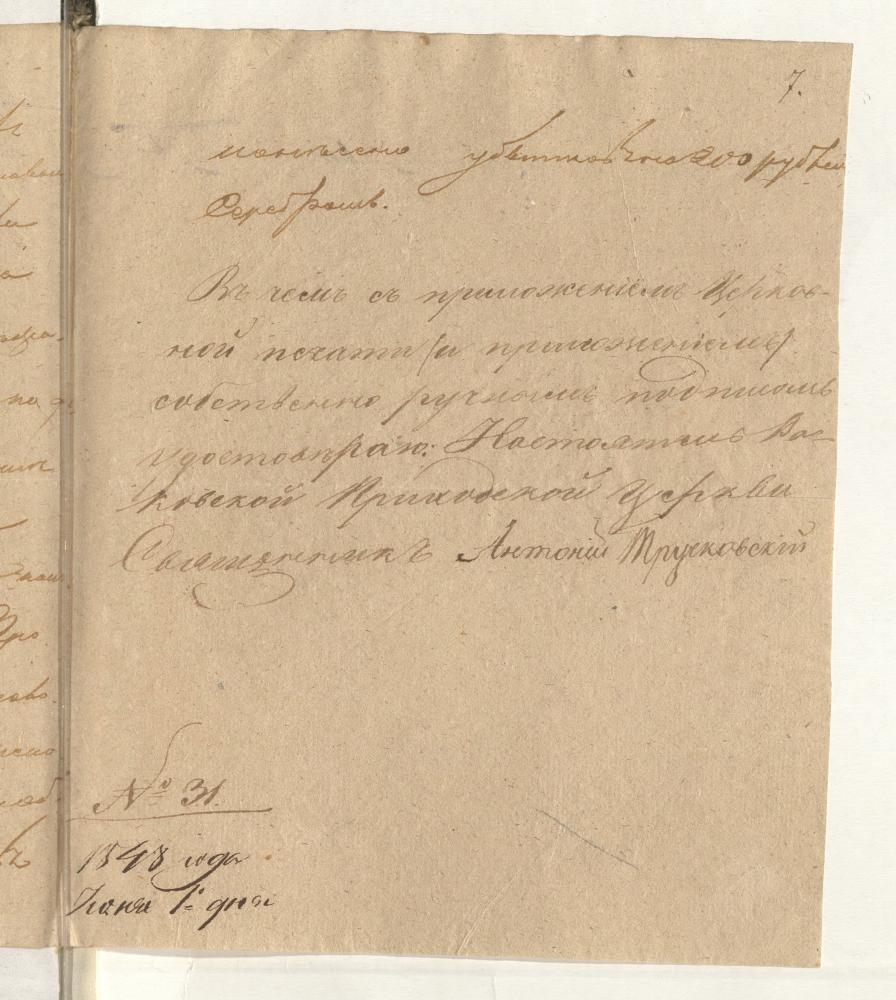 7.
нанесено убытковъ на 200 рублей
Серебромъ.
Въ чемъ съ приложеніемъ Церков-
ной печати (и приложеніемъ)
собственно ручнымъ подписомъ
удостовѣряю: Настоятель
ковской Приходской Церкви
Священникъ Антоній Тручковскій
№ 31.
1848 года
Іюня 1 дня